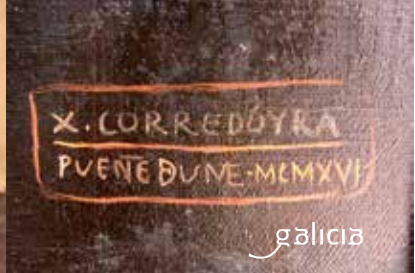 X. CORREDOYRA
PUENTEDUNE·MCMXVI
galicia